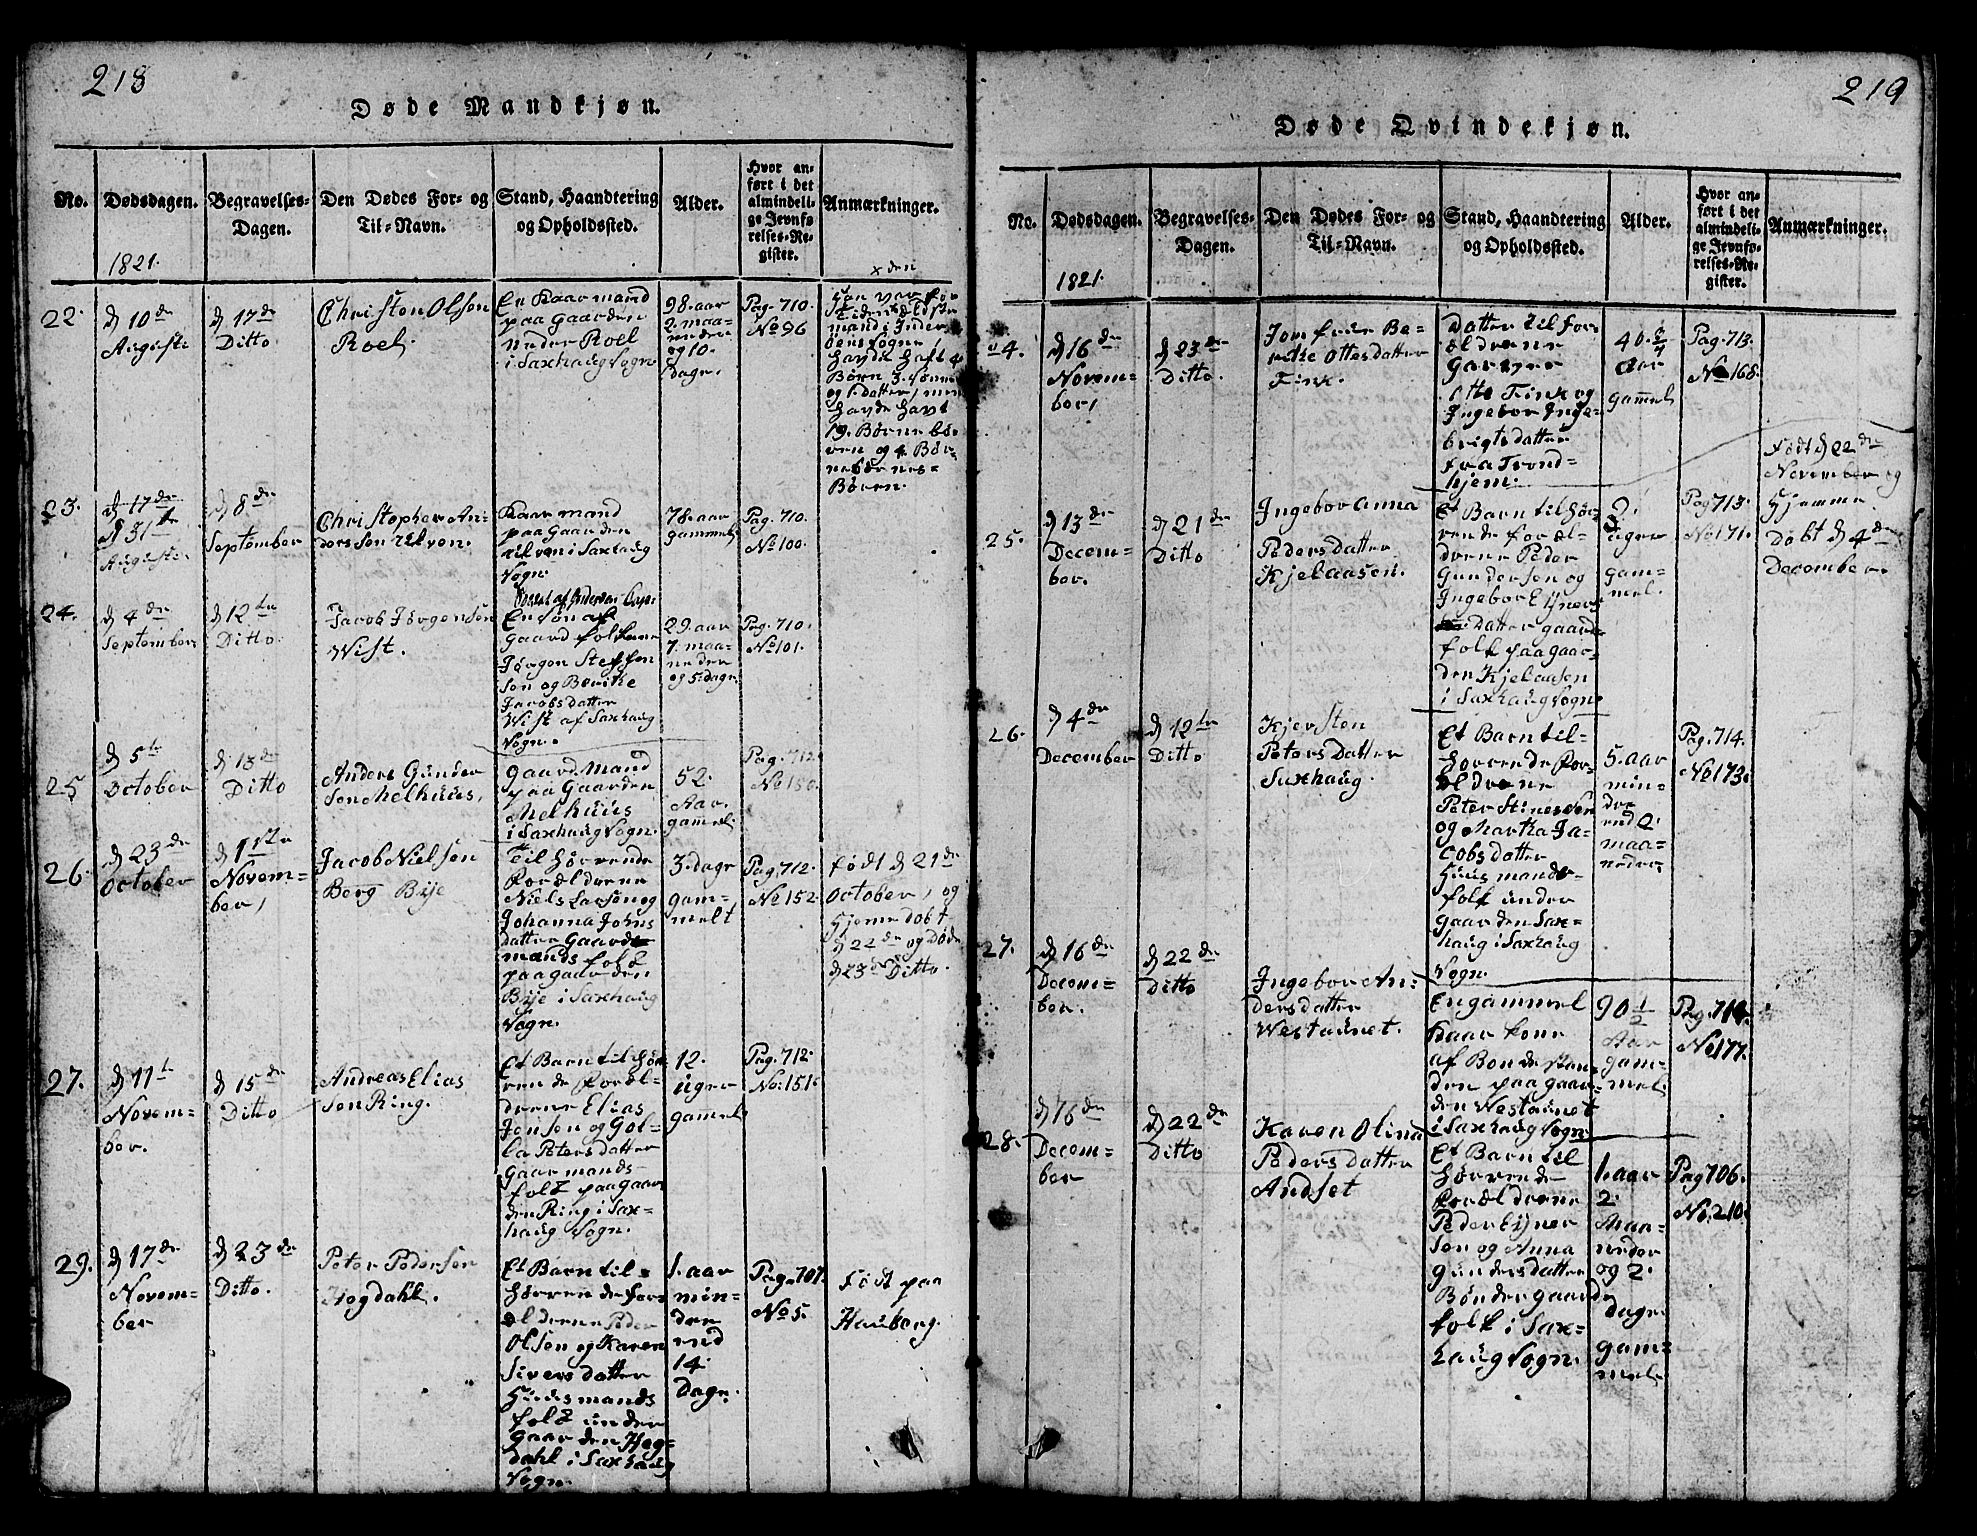 218
Døde Mandkjøn.
No.
Dødsdagen.
1821.
Begravelses-
Dagen.
Den Dødes For- og
Til-Navn.
Stand, Haandtering
og Opholdssted.
Alder.
Hvor an-
ført i det
almindeli-
ge Jevnfø-
relses-Re-
gister.
Anmærkninger.
22.
d 10de
Augusti
d 17de
Ditto
Christen Olsen
Roel.
En Kaarmand
paa Gaarden
Nedre Roel
i Saxhaug Sogn
98. aar
2. maa-
neder
og 10.
dage.
Pag. 710.
No 96
Børn 3. Sønner
og 1. datter, men
havde havt
19. Børnebø-
ren og 4. Bør-
nebørnes-
Børen.
23.
d 31te
Augusti
d 8de
September
Christopher An-
dersen Ulven.
Kaarmand
paa Gaarden
Ulven i Saxhaug
Sogn.
78. aar
gammel,
Pag. 710.
No 100.
24.
d 4de
September
d 12te
Ditto.
Jacob Jørgensen
Wist.
En Søn af
Gaardfolkene
Jørgen Steffen
sen og Berithe
Jacobsdatter
Wist af Saxhaug
Sogn.
29. aar
7. maa-
neder
og 5. dage
Pag. 710.
No 101.
25
d 5te
October
d 13de
Ditto
Anders Gunder
sen Melhuus,
Gaardmand
paa Gaarden
Melhuus
i Saxhaug Sogn.
52.
Aar.
gammel.
Pag. 712.
No 150.
26.
d 23de
October
d 1ste
Novem-
ber,
Jacob Nielsen
Berg Bye
Tilhørende
Forældrene
Niels Larsen og
Johanna Johns
datter Gaard-
mandsfolk
paa gaarden
Bye i Saxhaug
Sogn.
3. dage
gam-
melt
Pag. 712.
No 152.
født d 21de
October, og
Hjemedøbt
d 22de og Døde
d 23de Ditto.
27.
d 11te
Novem-
ber.
d 15de
Ditto
Andreas Elias
sen Ring.
Et Barn tilhør
rende Foræl-
drene Elias
Jensen og Gol-
la Petersdatter
Gaarmands-
folk paa gaar
den Ring i Sax-
haug Sogn.
12.
uger
gamel
Pag. 712.
No. 151.
29.
d 17de
Novem-
ber
d 23de
Ditto.
Peter Pedersen
Hegdahl.
Et Barn til-
hørrende for-
ældrene Peder
Olsen og Karen
Siversdatter
Huusmands
folk under
gaarden Heg-
dahl i Saxhaug
Sogn.
1. aar
min-
dre
end
14.
Dage.
Pag. 707.
No 5.
Født paa
Hauberg.
219
Døde Qvindekjøn.
No.
Dødsdagen.
1821.
Begravelses-
Dagen.
Den Dødes For- og
Til-Navn.
Stand, Haandtering
og Opholdssted.
Alder.
Hvor an-
ført i det
almindeli-
ge Jevnfø-
relses-Re-
gister.
Anmærkninger.
24.
d 16de
Novem-
ber,
d 23de
Ditto.
Jomfrue Be-
rethe Ottesdatter
Fink.
Datter til for
ældrene
Garver
Otte Fink og
Ingebor Inge-
brigtsdatter
fra Trond-
hjem.
40. 3/4
aar
gammel
Pag. 713.
No 168.
25.
d 13de
Decem-
ber.
d 21de
Ditto
Ingebor Anna
Pedersdatter
Kjelaasen.
Et Barn tilhør-
rende foræl-
drene Peder
Gundersen og
Ingebor Ejners
Datter gaard-
folk paa gaar-
den Kjelaasen
i Saxhaug Sogn
3.
uger
gam-
mel.
Pag 713.
No 171.
Født d 22de
November og
Hjemme
Døbt d 4de
December.
26.
d 4de
December
d 12te
Ditto
Kjersten
Petersdatter
Saxhaug.
Et Barn til-
hørrende For-
ældrene
Peter Stinessen
og Martha Ja-
cobsdatter
Huusmands-
folk under
gaarden Sax-
haug i Saxhaug
Sogn.
5. aar
min-
dre
end 2.
maa-
neder.
Pag. 714.
No 173.
27.
d 16de
Decem-
ber.
d 22de
Ditto
Ingebor An-
dersdatter
Westaunet.
En gammel
Kaarkone
af Bondestan-
den paa gaar-
den Westaunet
i Saxhaug Sogn.
90 1/2
Aar
gam-
mel.
Pag. 714.
No 177.
28.
d 16de
Decem-
ber
d 22de
Ditto
Karen Olina
Pedersdatter
Andset
Et Barn til
hørrende
Forældrene
Peder Ejner
sen og Anna
Gundersdatter
Bøndergaards
folk i Sax-
haug Sogn.
1. aar
2.
Maa-
neder
og 2.
Dage
gam-
mel.
Pag 706.
No. 210.